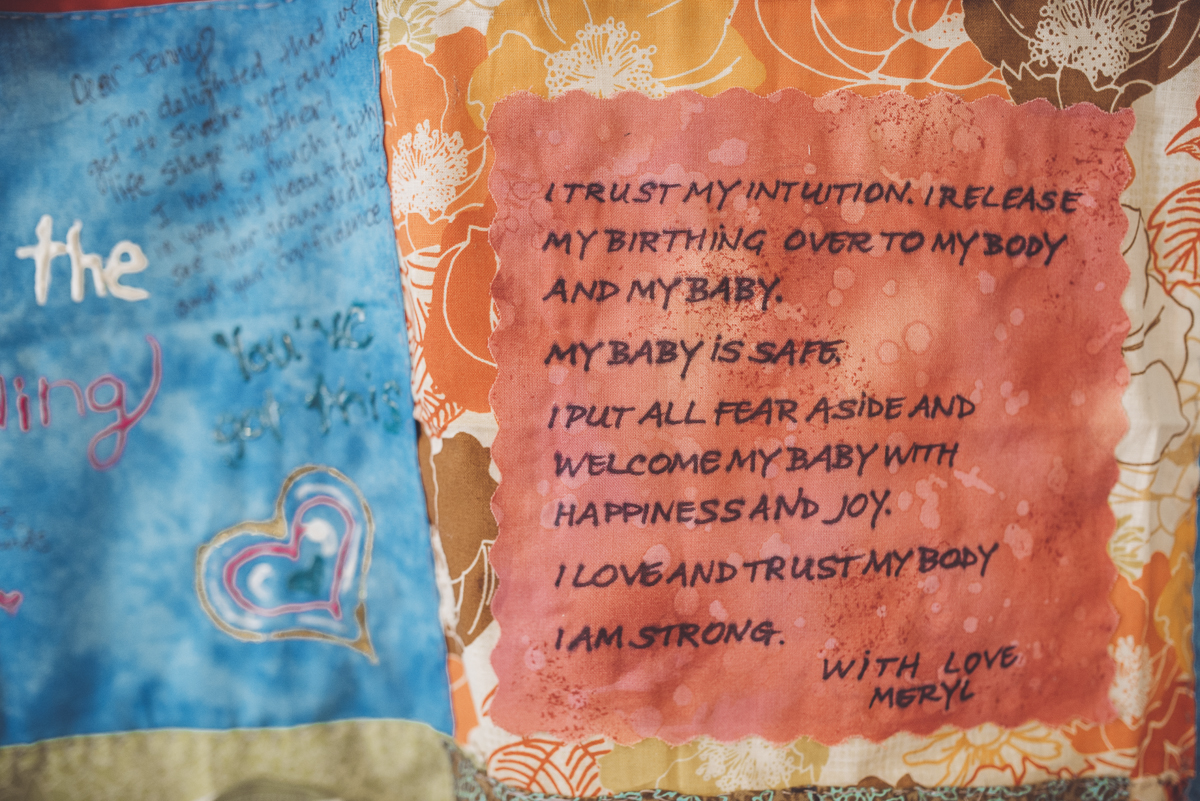 Dear Jenny,
I'm delighted that we
get to share yet another
life stage together!
I have so much faith
in you, my beautiful
and your confidence
the
ing
You've
got this
I TRUST MY INTUITION. I RELEASE
MY BIRTHING OVER TO MY BODY
AND MY BABY.
MY BABY IS SAFE.
I PUT ALL FEAR ASIDE AND
WELCOME MY BABY WITH
HAPPINESS AND JOY.
I LOVE AND TRUST MY BODY
I AM STRONG.
WITH LOVE
MERYL